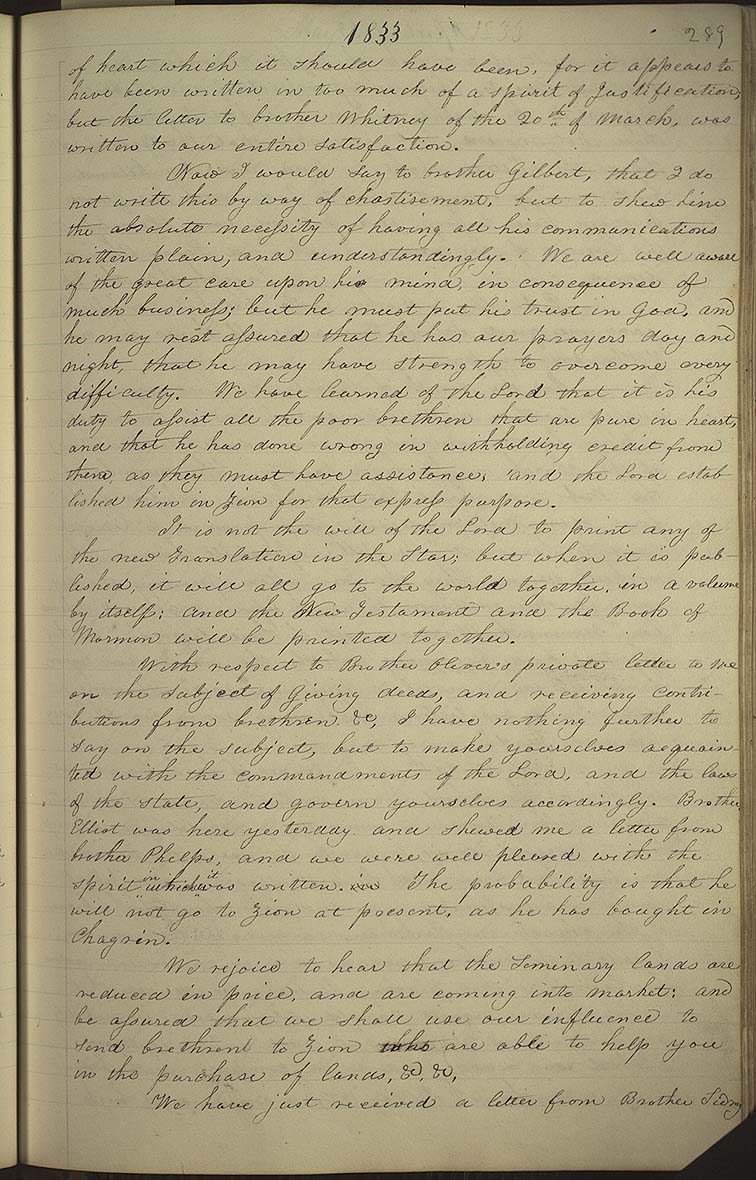 1833
289
of heart which it should have been, for it appears to
have been written in too much of a spirit of Justification;
but the letter to brother Whitney of the 20th of March, was
written to our entire satisfaction.
Now I would say to brother Gilbert, that I do
not write this by way of chastisement, but to shew him
the absolute necessity of having all his communications
written plain, and understandingly. We are well aware
of the great care upon his mind, in consequence of
much business; but he must put his trust in God, and
he may rest assured that he has our prayers day and
night, that he may have strength to overcome every
difficulty. We have learned of the Lord that it is his
duty to assist all the poor brethren that are pure in heart,
and that he has done wrong in withholding credit from
them, as they must have assistance; and the Lord estab
lished him in Zion for that express purpose.
It is not the will of the Lord to print any of
the new Translation in the Star; but when it is pub-
lished, it will all go to the world together, in a volume
by itself; and the New Testament and the Book of
Mormon will be printed together.
With respect to Brother Oliver's private letter to me
on the subject of Giving deeds, and receiving contri-
butions from brethren &c, I have nothing further to
say on the subject, but to make yourselves acquain-
ted with the commandments of the Lord, and the laws
of the State, and govern yourselves accordingly. Brother
Elliot was here yesterday and shewed me a letter from
brother Phelps, and we were well pleased with the
spirit in which it was written. in The probability is that he
will not go to Zion at present, as he has bought in
Chagrin.
We rejoice to hear that the Seminary lands are
reduced in price, and are coming into market; and
be assured that we shall use our influence to
send brethren to Zion who are able to help you
in the purchase of lands, &c, &c,
We have just received a letter from Brother Sidney